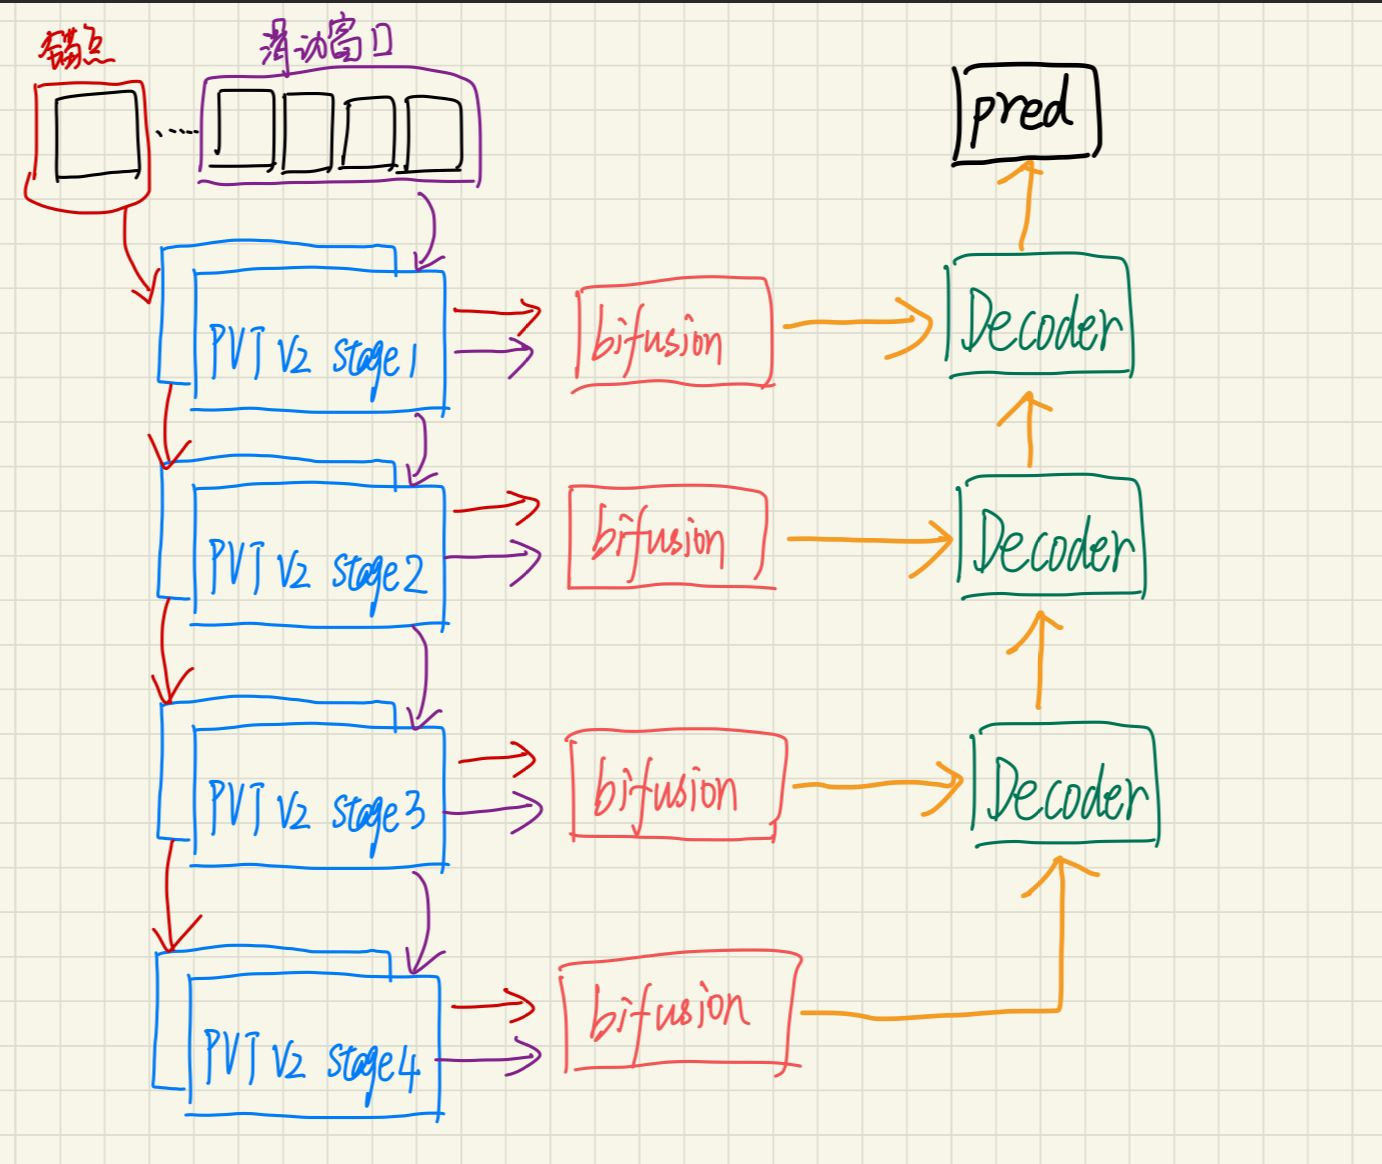 锚点
滑动窗口
pred
PVT V2 stage1
bifusion
Decoder
PVT V2 stage2
bifusion
Decoder
PVT V2 stage3
bifusion
Decoder
PVT V2 stage4
bifusion